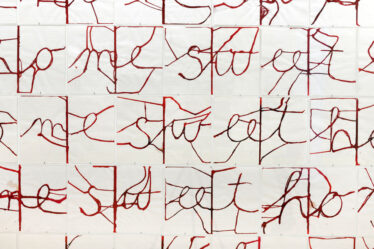 ho me sweet
me sweet h
me sweet ho